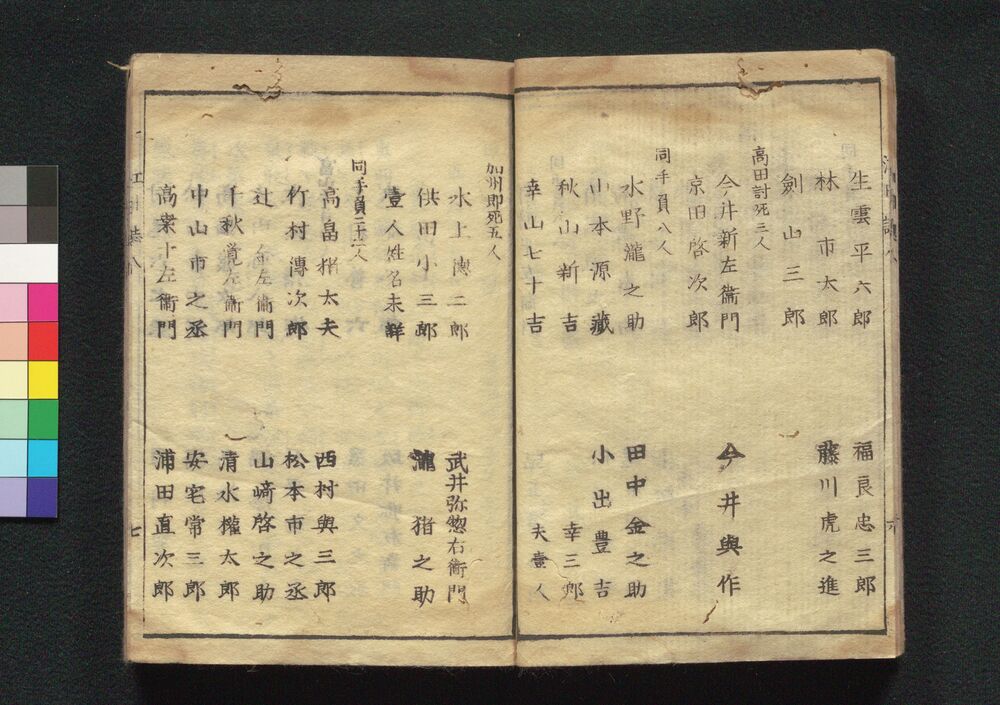 生雲平六郎 福良忠三郎
林市太郎 藤川虎之進
劍山三郎
高田討死三人
今井新左衞門 今井與作
京田啓次郎
同手負八人
水野瀧之助 田中金之助
山本源藏 小出豊吉
秋山新吉 幸三郎
幸山七十吉 夫壹人
加州即死五人
水上德二郎 武井弥惣右衞門
供田小三郎 瀧猪之助
壹人姓名未詳
同手負二十人
高畠猪太夫 西村與三郎
竹村傳次郎 松本市之丞
辻金左衞門 山﨑啓之助
千秋覚左衞門 清水權太郎
中山市之丞 安宅常三郎
高桒十左衞門 浦田直次郎
七